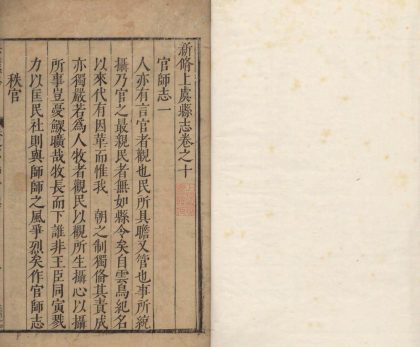 新修上虞縣志卷之十
官師志一
人亦有言官者觀也民所具瞻又管也事所統
攝乃官之最親民者無如縣令矣自雲鳥紀名
以來代有因革而惟我 朝之制獨備其責成
亦獨嚴若為人牧者觀民以觀所生攝心以攝
所事豈憂鰥曠哉牧長而下誰非王臣同寅戮
力以匡民社則與師師之風爭烈矣作官師志
秩官